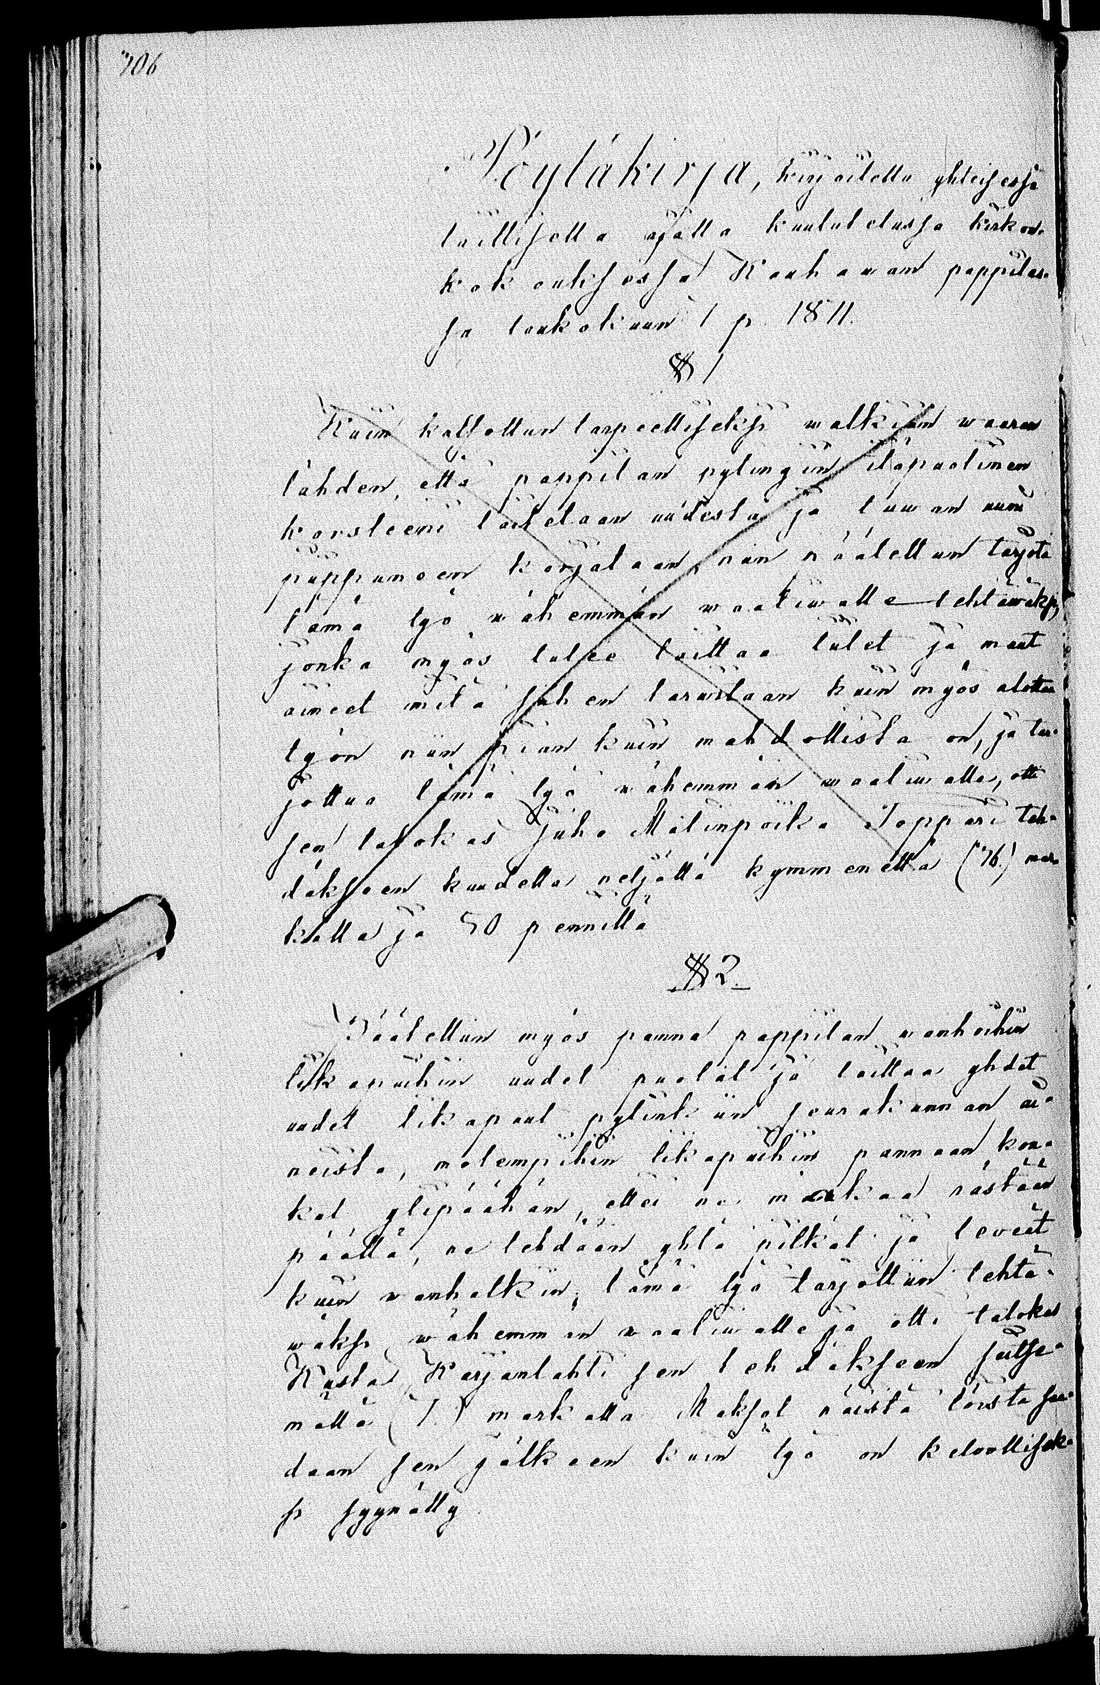 406
Pöytäkirja, kirjoitettu yhteisessä
laillisella ajalla kuulutetussa kirkon-
kokouksessa Kauhawan pappilas-
sa toukokuun 1 p. 1871.
§ 1
Kuin katsottun tarpeelliseksi walkian waaran
tähden, että pappilan pytingin itäpuolinen
korsteeni laitetaan uudesta ja tuwan uuni
piippuneen korjataan, niin päätettun tarjota
tämä työ wähemmän waatiwalle tehtäwäksi,
jonka myös tulee laittaa tiilet ja muut
aineet mitä siihen tarwitaan kuin myös alottaa
työn niin pian kuin mahdollista on, ja tar-
jottua tämä työ wähemmän waatiwalle, otti
sen talokas Juho Matinpoika Toppari teh-
däkseen kuudella neljättä kymmenellä (36) mar-
kalla ja 50 pennillä
§ 2
Päätettiin myös panna pappilan wanhoihin
likapuihin uudet puolat ja laittaa yhdet
uudet likapuut pytinkiin seurakunnan ai-
neista, molempihin likapuihin pannaan kou-
kut yläpäähän, ettei ne makaa räystään
päällä, ne tehdään yhtä pitkät ja leveät
kuin wanhatkin; tämä työ tarjottiin tehtä-
wäksi wähemmän waatiwalle ja otti talokas
Kusta Karjanlahti sen tehdäkseen seitse-
mällä (7.) markalla Maksot näistä töistä saa-
daan sen jälkeen kuin työ on kelwolliseks-
si syynätty